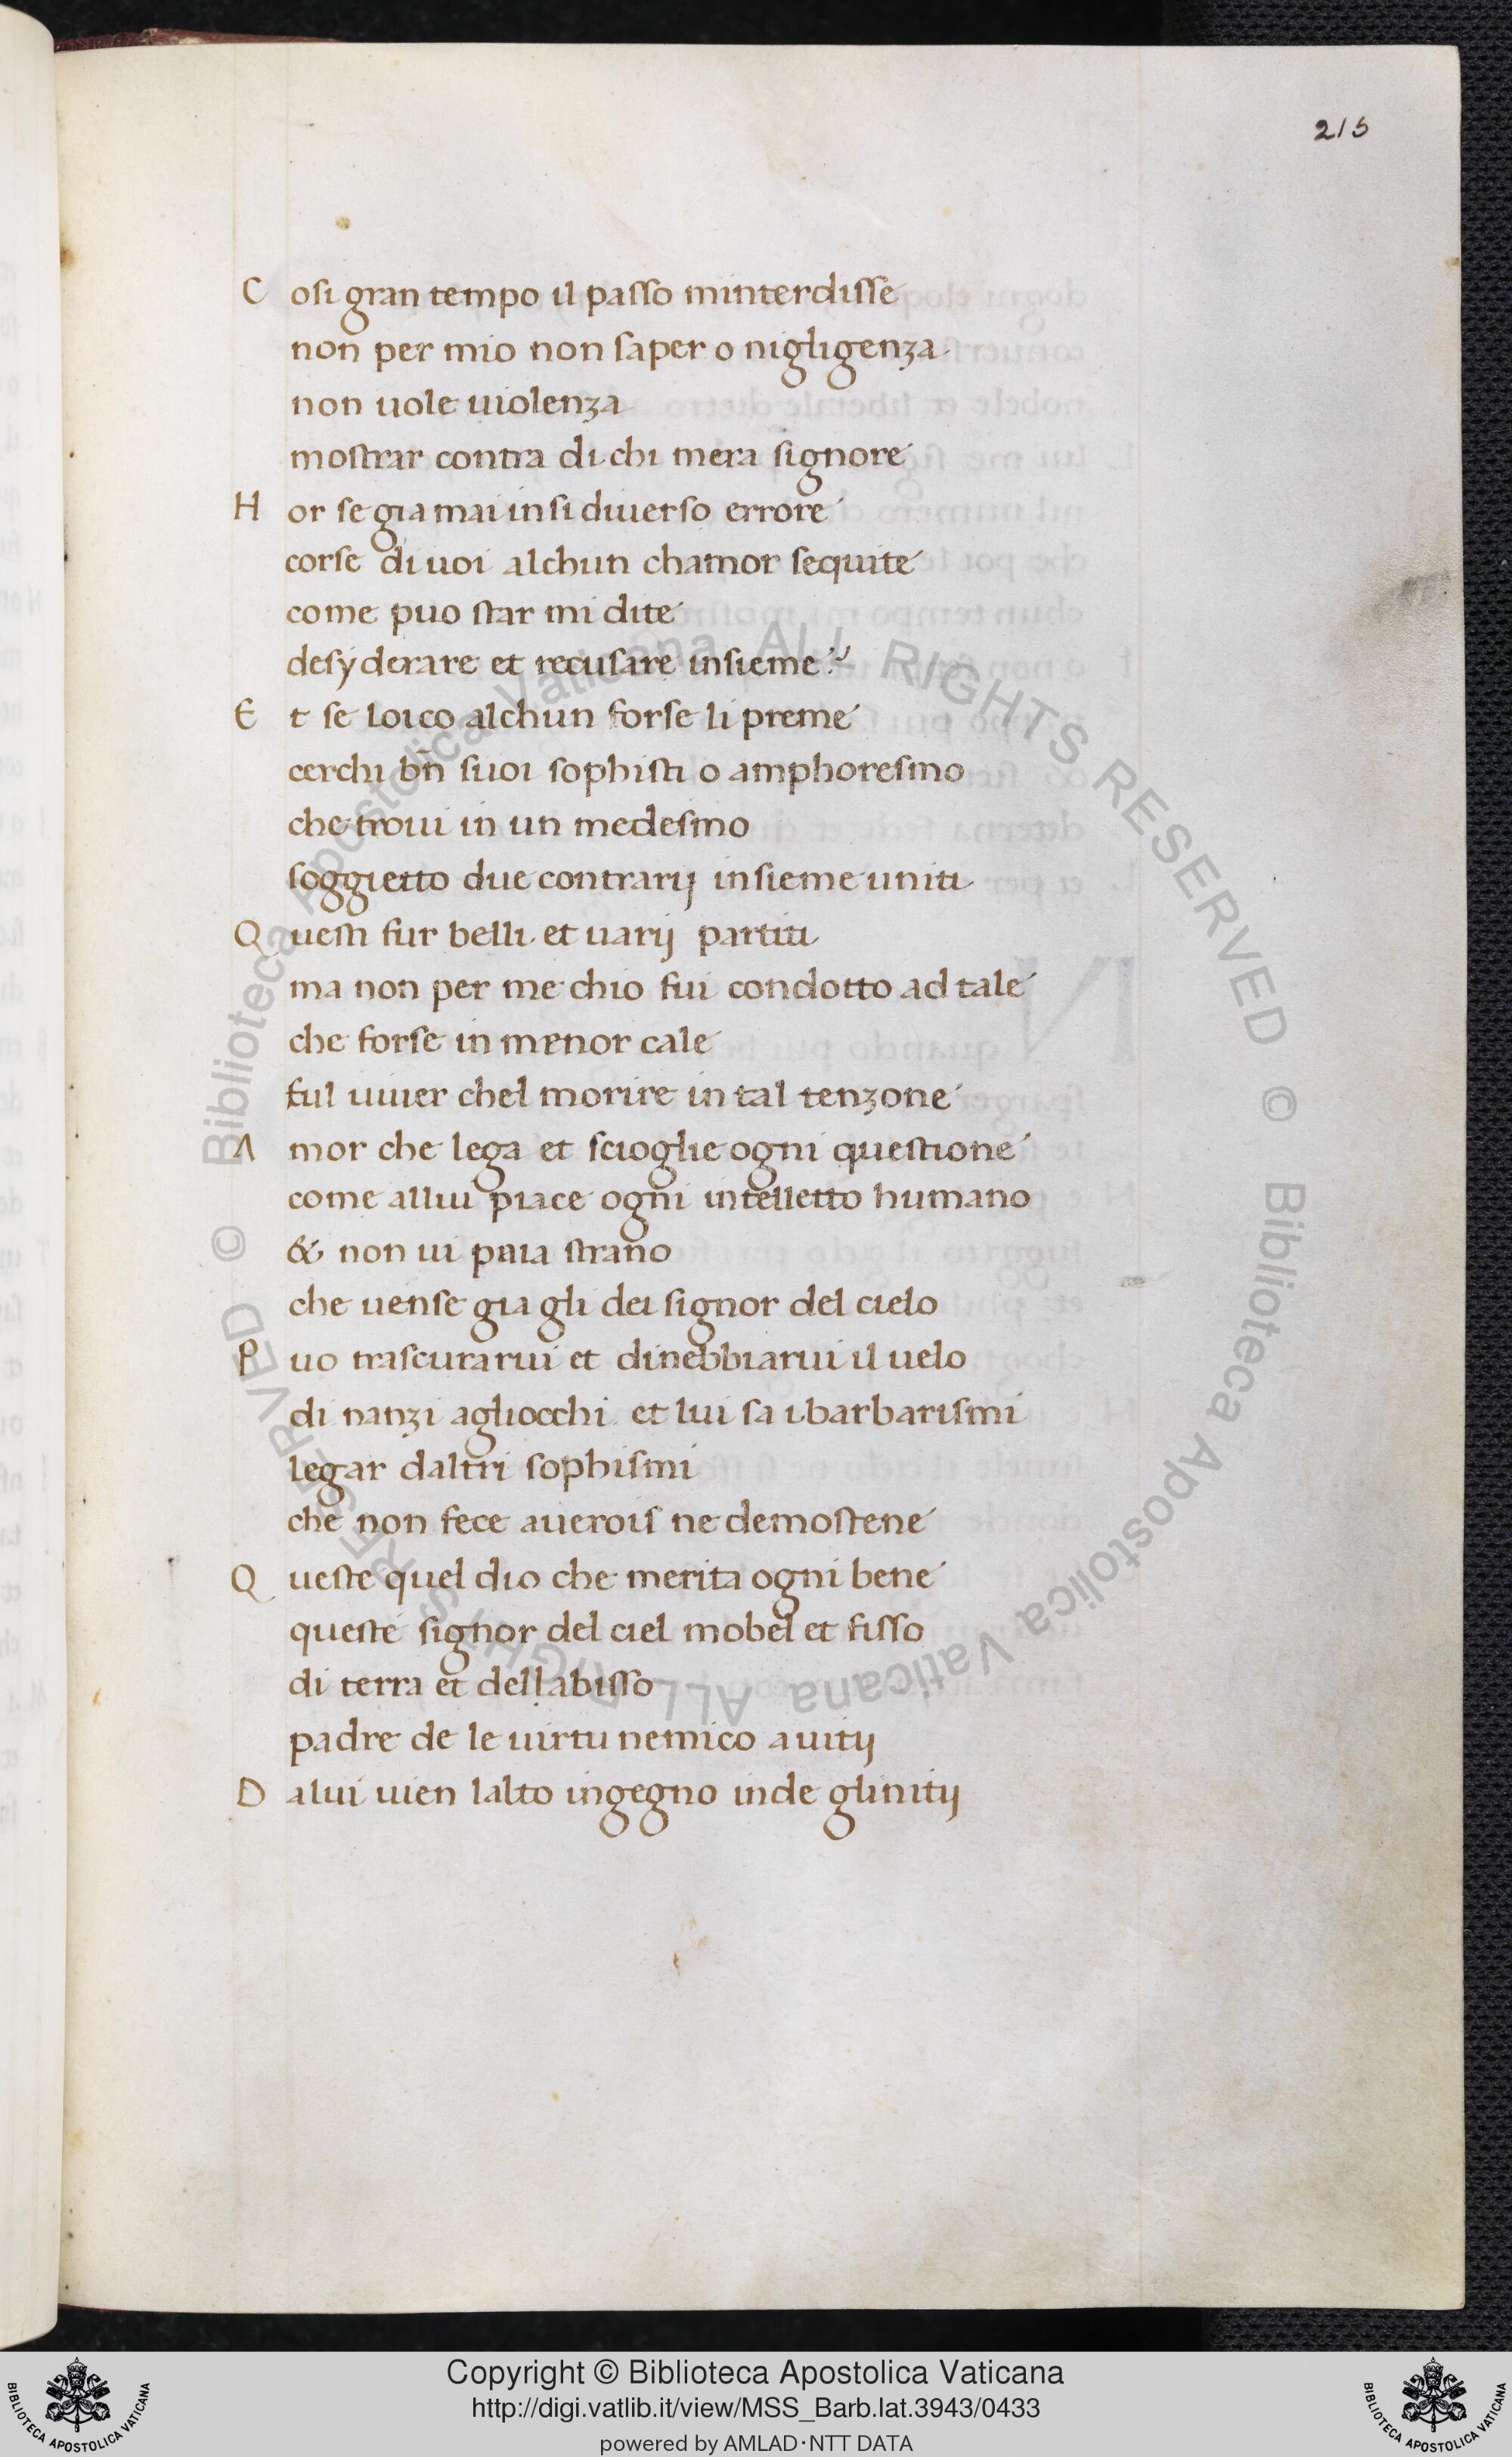 215
C osi gran tempo il passo minterdisse
non per mio non saper o nigligenza
non uole uiolenza
mostrar contra di chi mera signore
H or se gia mai in si diuerso errore
corse di uoi alchun chamor sequite
come puo star mi dite
desyderare et recusare insieme?
E t se loico alchun forse li preme
cerchi bñ suoi sophisti o amphoresmo
che troui in un medesmo
soggietto due contrarij insieme uniti
Q uesti fur belli et uarij partiti
ma non per me chio fui condotto ad tale
che forse in menor cale
ful uiuer chel morire in tal tenzone
A mor che lega et scioglie ogni questione
come allui piace ogni intelletto humano
& non ui paia strano
che uense gia gli dei signor del cielo
P uo trascurarui et dinebbiarui il uelo
di nanzi agliocchi et lui sa i barbarismi
legar daltri sophismi
che non fece auerois ne demostene
Q ueste quel dio che merita ogni bene
queste signor del ciel mobel et fisso
di terra et dellabisso
padre de le uirtu nemico a uitij
D alui uien lalto ingegno inde glinitij
© Biblioteca Apostolica Vaticana ALL RIGHTS RESERVED © Biblioteca Apostolica Vaticana ALL RIGHTS RESERVED
Copyright © Biblioteca Apostolica Vaticana
http://digi.vatlib.it/view/MSS_Barb.lat.3943/0433
powered by AMLAD·NTT DATA
BIBLIOTECA APOSTOLICA VATICANA
BIBLIOTECA APOSTOLICA VATICANA